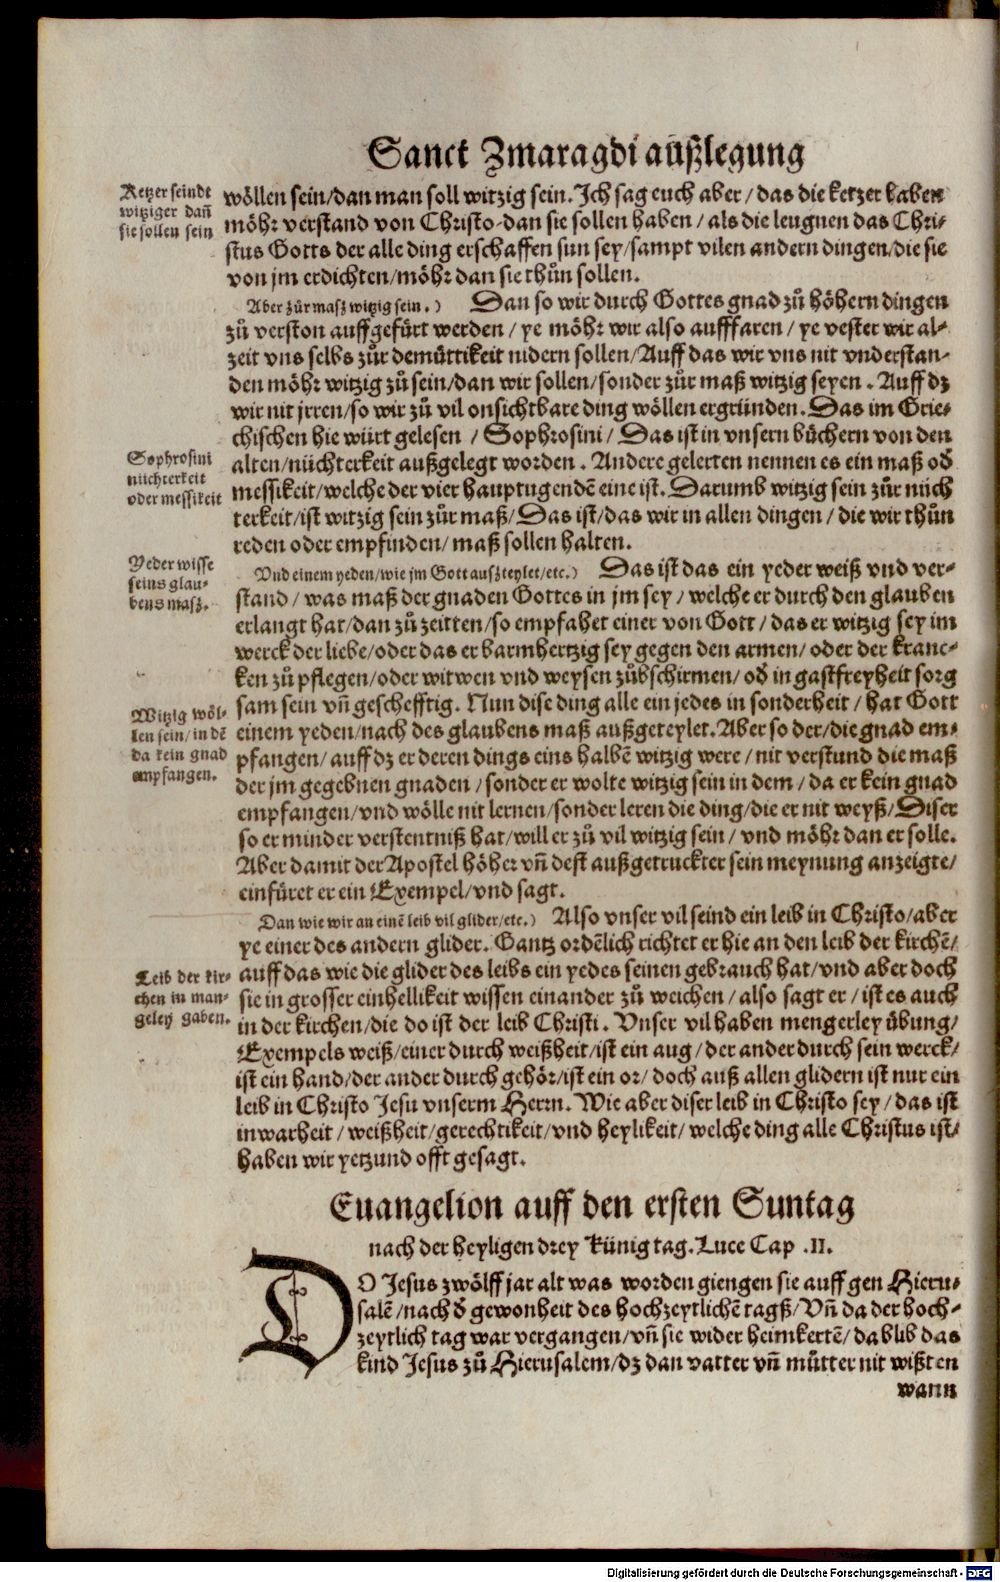 Sanct Zmaragdi außlegung
Ketzer seindt
witziger dañ
sie sollen sein
wöllen sein/dan man soll witzig sein. Ich sag euch aber/das die ketzer haben
möhr verstand von Christo-dan sie sollen haben/als die leugnen das Chri-
stus Gotts der alle ding erschaffen sun sey/sampt vilen andern dingen/die sie
von jm erdichten/möhr dan sie thůn sollen.
Aber zůr masz witzig sein.) Dan so wir durch Gottes gnad zů höhern dingen
zů verston auffgefürt werden/ye möhr wir also aufffaren/ye vester wir al-
zeit vns selbs zůr demůttikeit nidern sollen/Auff das wir vns nit vnderstan-
den möhr witzig zů sein/dan wir sollen/sonder zůr maß witzig seyen. Auff dz
wir nit jrren/so wir zů vil onsichtbare ding wöllen ergründen. Das im Grie-
chischen hie würt gelesen/Sophrosini/Das ist in vnsern büchern von den
Sophrosini
nüchterkeit
oder messikeit
alten/nüchterkeit außgelegt worden. Andere gelerten nennen es ein maß od̄
messikeit/welche der vier hauptugendē eine ist. Darumb witzig sein zůr nüch
terkeit/ist witzig sein zůr maß/Das ist/das wir in allen dingen/die wir thůn
reden oder empfinden/maß sollen halten.
Yeder wisse
seins glau-
bens masz.
Vnd einem yeden/wie jm Gott auszteylet/etc.) Das ist das ein yeder weiß vnd ver-
stand/was maß der gnaden Gottes in jm sey/welche er durch den glauben
erlangt hat/dan zů zeitten/so empfahet einer von Gott/das er witzig sey im
werck der liebe/oder das er barmhertzig sey gegen den armen/oder der kranc-
ken zů pflegen/oder witwen vnd weysen zůbschirmen/od̄ in gastfreyheit sorg
sam sein vñ gescheftig. Nun dise ding alle ein jedes in sonderheit/hat Gott
Witzig wöl-
len sein/in dē
da kein gnad
empfangen.
einem yeden/nach des glaubens maß außgeteylet. Aber so der/die gnad em-
pfangen/auff dz er deren dings eins halbē witzig were/nit verstund die maß
der jm gegebnen gnaden/sonder er wolte witzig sein in dem/da er kein gnad
empfangen/vnd wölle nit lernen/sonder leren die ding/die er nit weyß/Diser
so er minder verstentniß hat/will er zů vil witzig sein/vnd möhr dan er solle.
Aber damit der Apostel höher vñ dest außgetruckter sein meynung anzeigte/
einfüret er ein Exempel/vnd sagt.
Dan wie wir an einē leib vil glider/etc.) Also vnser vil seind ein leib in Christo/aber
ye einer des andern glider. Gantz ordēlich richtet er hie an den leib der kirchē/
Leib der kir-
chen in man-
geley gaben.
auff das wie die glider des leibs ein yedes seinen gebrauch hat/vnd aber doch
sie in grosser einhellikeit wissen einander zů weichen/also sagt er/ist es auch
in der kirchen/die do ist der leib Christi. Vnser vil haben mengerley übung/
Exempels weiß/einer durch weißheit/ist ein aug/der ander durch sein werck/
ist ein hand/der ander durch gehör/ist ein or/doch auß allen glidern ist nur ein
leib in Christo Jesu vnserm Herrn. Wie aber diser leib in Christo sey/das ist
inwarheit/weißheit/gerechtikeit/vnd heylikeit/welche ding alle Christus ist/
haben wir yetzund offt gesagt.
Euangelion auff den ersten Suntag
nach der heyligen drey Künig tag. Luce Cap .II.
DO Jesus zwölff jar alt was worden giengen sie auff gen Hieru-
salē/nach d̄ gewonheit des hochzeytlichē tagß/Vñ da der hoch-
zeytlich tag war vergangen/vñ sie wider heimkertē/da blib das
kind Jesus zů Hierusalem/dz dan vatter vñ můtter nit wißten
wann
Digitalisierung gefördert durch die Deutsche Forschungsgemeinschaft - DFG